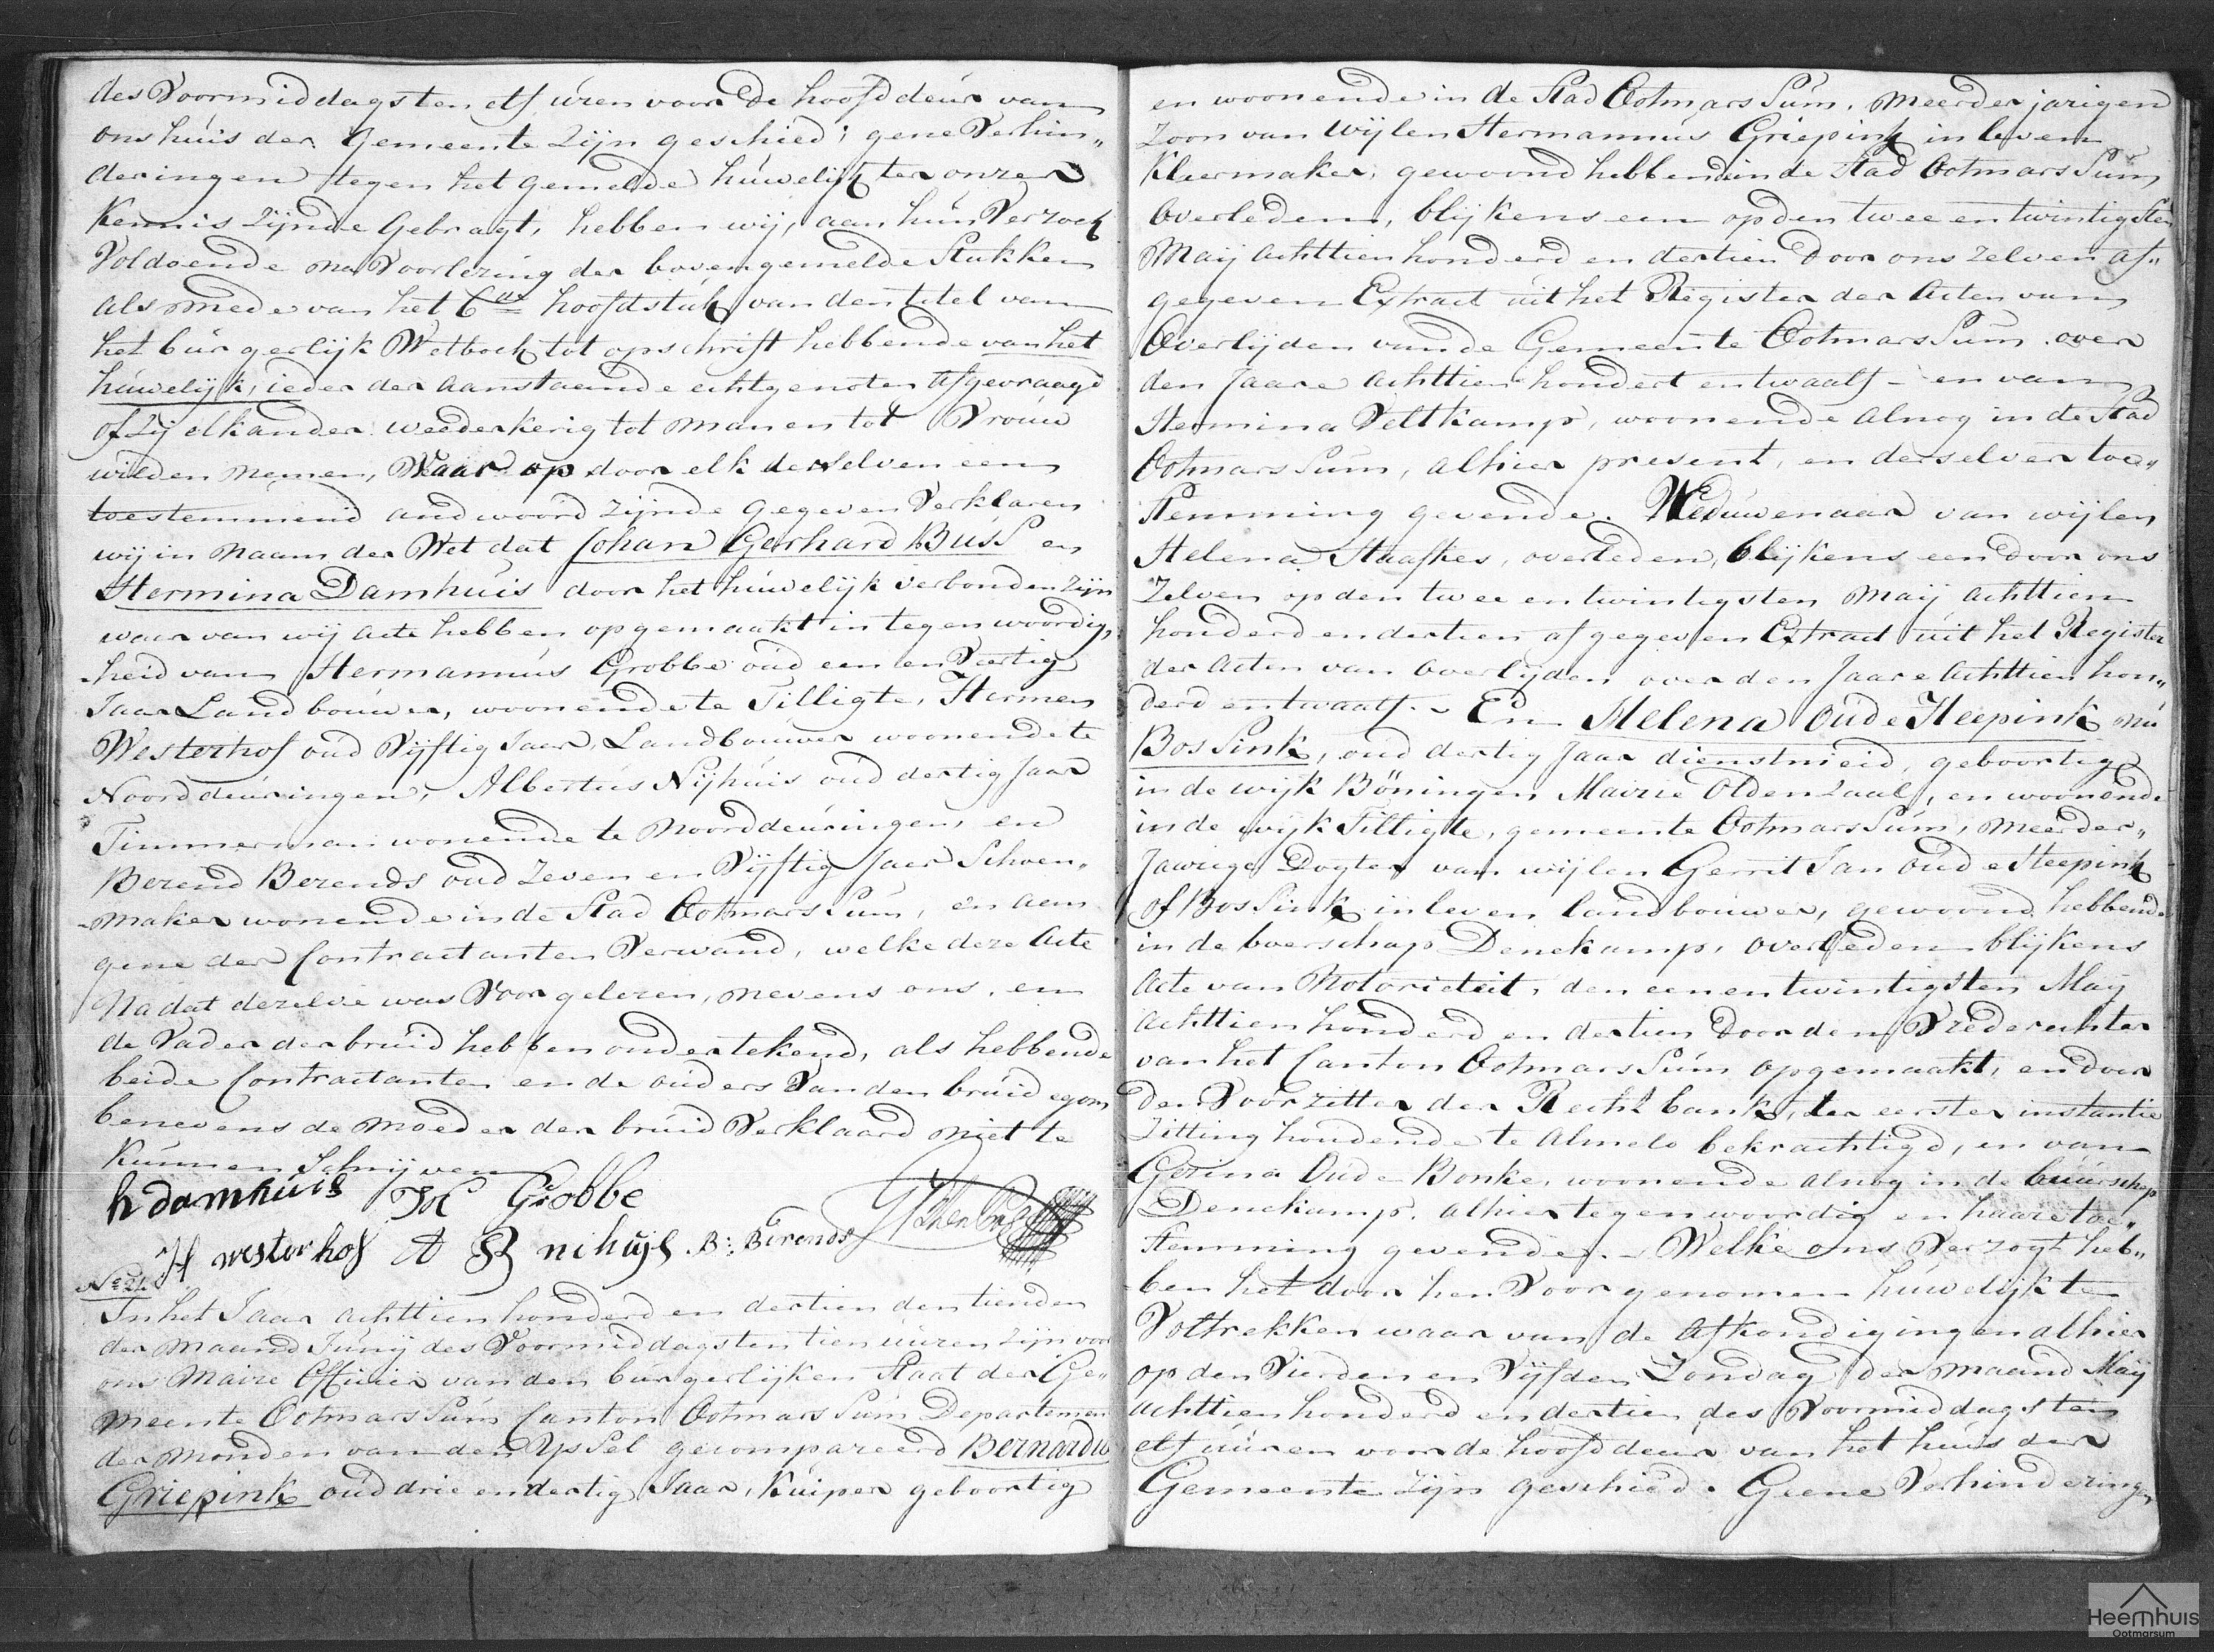 des Voormiddags ten elf uren voor de hoofddeur van
ons huis der Gemeente Zijn geschied; gene Verhin„
deringen tegen het gemelde húwelijk ter onzer
Kennis Zijnde Gebragt, hebben wij, aan hún Verzoek
Voldoende na Voorlezing der bovengemelde Stukken
als mede van het 6de hoofdstúk van den titel van
het búrgerlijk Wetboek tot opschrift hebbende van het
húwelijk, ieder der aanstaande echtgenoten Afgevraagd
of Zij elkander weederkerig tot Man en tot Vrouw
wilden nemen, Waar op door elk derselven een
toestemmend andwoord zijnde gegeven Verklaren
wij in Naam der Wet dat Johan Gerhard Búss en
Hermina Damhuis door het húwelijk verbonden zijn
waar van wij acte hebben opgemaakt in tegenwoordig„
heid van Hermannús Grobbe oúd een en Veertig
Jaar Landboúwer, woonende te Tilligte, Hermen
Westerhof oud Vijftig Jaar, Landbouwer woonende te
Noorddeúringen, Albertús Nijhúis oúd dertig Jaar
Timmerman wonende te Noorddeúringen en
Berend Berends oud Zeven en Vijftig Jaar Schoen„
maker wonende in de Stad Ootmarssúm, en aen
gene der Contractanten Verwand, welke deze Acte
Nadat dezelve was Voorgelezen, nevens ons, en
de Vader der bruid hebben ondertekend, als hebbende
beide Contractanten en de oúders Van den brúidegom
benevens de Moeder der brúid Verklaard niet te
Kúnnen Schrijven
h damhúis H Grobbe
H westerhof A B nihuijs B: Berends
No 21.
In het Jaar achttienhonderd en dertien den tienden
der maand Júnij des Voormiddags ten tien úúren zijn voor
ons Maire Officier van den búrgerlijken Staat der Ge„
meente Ootmarssúm Canton Ootmarssúm Departement
der Monden van den Yssel gecompareerd Bernardus
Griepink oúd drie en dertig Jaar, Kúiper geboortig
en woonende in de Stad Ootmarssúm. Meerderjarigen
Zoon van Wijlen Hermannús Griepink in leven
Kleermaker, gewoond hebbende in de Stad Ootmarssúm
Overleden, blijkens een op den twee en twintigsten
Maij achttienhonderd en dertien door ons zelven af„
gegeven Extract úit het Register der Acten van
Overlijden van de Gemeente Ootmarssúm over
den Jaare achttienhondert en twaalf - en van
Hermina Veltkamp, woonende alnog in de Stad
Ootmarssúm, alhier present, en derselver toe„
Stemming gevende. Wedúwenaar van wijlen
Helena Haafkes, overleden, blijkens een door ons
Zelven op den twee en twintigsten Maij achttien
honderd en dertien afgegeven Extract úit het Register
der Acten van overlijden over den Jaare Achttien hon„
derd en twaalf. - En Helena oúde Heepink nú
Bossink, oud dertig Jaar dienstmeid, geboortig
in de wijk Böningen Mairie Oldenzaal, en woonende
in de wijk Tilligte, gemeente Ootmarssúm, meerder„
Jarige Dogter van wijlen Gerrit Jan oúde Heepink
of Bossink in leven landboúwer, gewoond hebbende
in de boerschap Denekamp, overleden blijkens
Acte van Notoriteit, den een en twintigsten Maij
achttienhonderd en dertien door den Vrederechter
van het Canton Ootmarssúm opgemaakt, en door
Den Voorzitter der Rechtbank, ter eerster instantie
Zitting houdende te Almelo bekrachtigd, en van
Gerina Oúde Bonke, woonende alnog in de búúrschap
Denekamp, alhier tegenwoordig en haare toe„
stemming gevende. - Welke ons Verzogt heb„
ben het door hen Voorgenomen húwelijk te
Voltrekken waar van de Afkondigingen alhier
op den Vierden en Vijfden Zondag der maand Maij
achttienhonderd en dertien des Voormiddags ten
elf úúren voor de hoofddeúr van het húis der
Gemeente zijn geschied. Geene Verhinderingen
Heemhuis
Ootmarsum